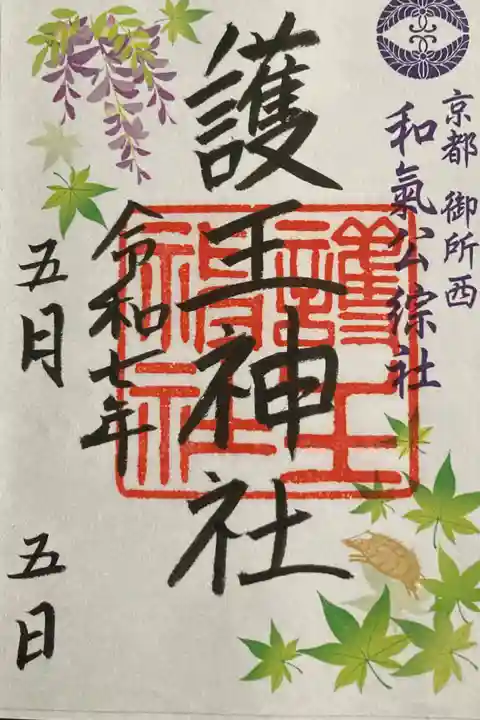 京都 御所西
和氣公綜社
護王神社
護王
神社
令和七年
五月 五日